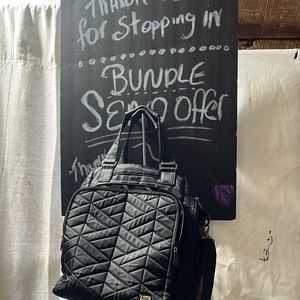 Thank
for Stopping in
BUNDLE
SEND OFFER
Thank